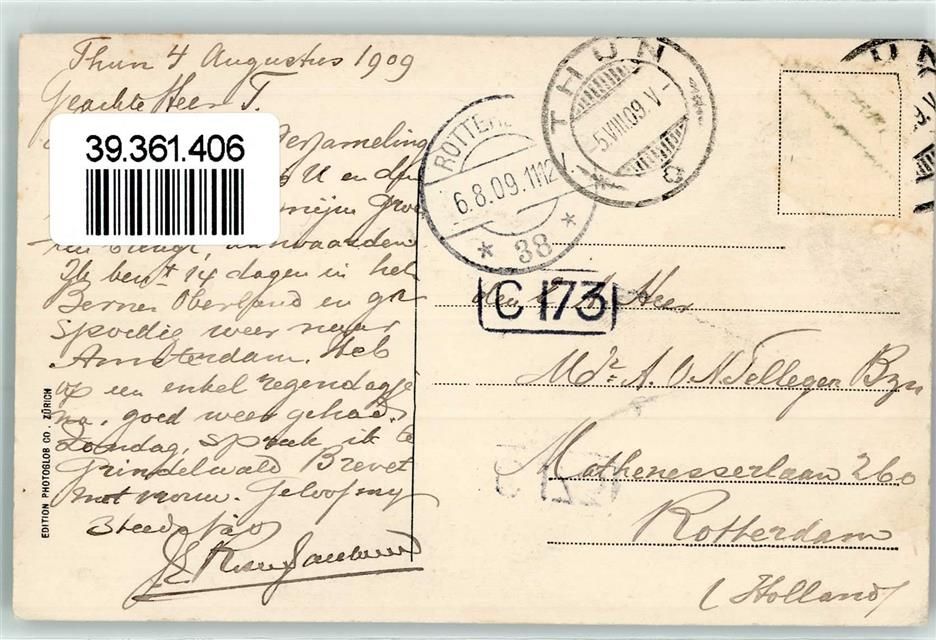 Thun 4 Augustus 1909
Geachte Heer T.
39.361.406
Verzameling
U en den
mijn
aanvaarden
Ik ben 14 dagen in het
Berner Oberland en ga
spoedig weer naar
Amsterdam. Heb
op een enkel regendagje
na, goed weer gehad.
Zondag, sprak ik te
Grindelwald Brevet
met vrouw. Geloof my
Steeds
EDITION PHOTOGLOB CO., ZÜRICH
ROTTER
6.8.09.11-12
* 38 *
THUN
-5.VIII.09.V-
C 173
den Heer
Mr. A. O N Tellegen Bzn
Mathenesserlaan 260
Rotterdam
(Holland)